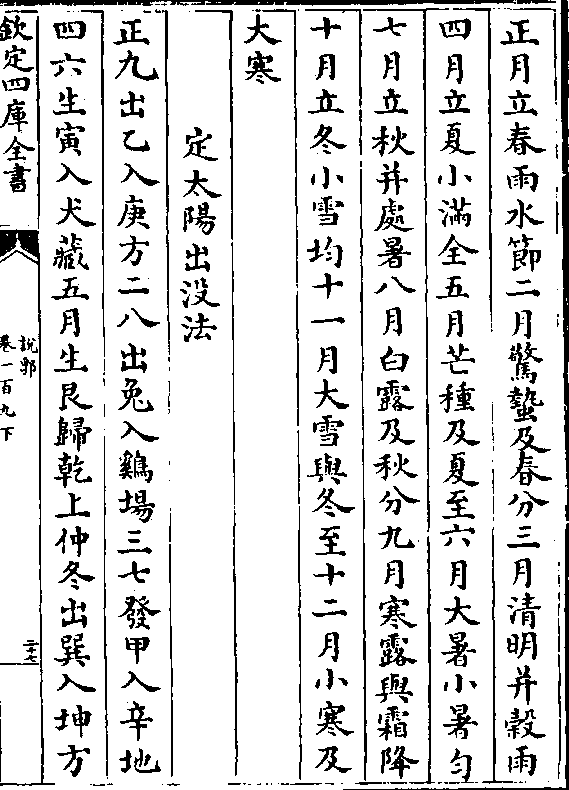 正月立春雨水節二月驚蟄及春分三月清明并榖雨
四月立夏小滿全五月芒種及夏至六月大暑小暑勻
七月立秋并處暑八月白露及秋分九月寒露與霜降
十月立冬小雪均十一月大雪與冬至十二月小寒及
大寒
定太陽出没法
正九出乙入庚方二八出兔入鷄場三七發甲入辛地
四六生寅入犬藏五月生艮歸乾上仲冬出巽入坤方
欽定四庫全書
說郛
卷一百九下
三十七